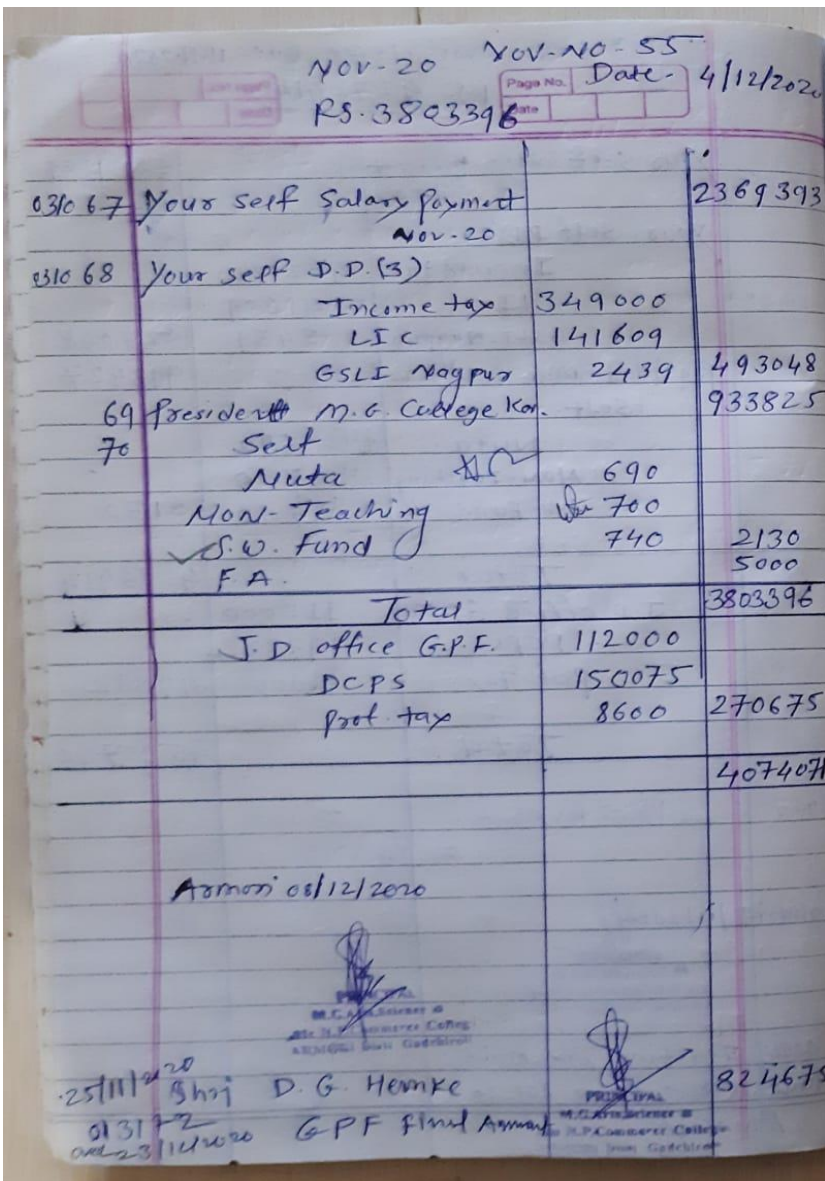 NOV-20 VOV-NO-55
Page No. Date - 4/12/2020
RS. 3803396 Date
031067 Your self Salary Payment 2369393
NOV-20
031068 Your self D.D. (3)
Income tax 349000
LIC 141609
GSLI Nagpur 2439 493048
69 President M.G. College Kor. 933825
70 Self
Nuta 690
NON-Teaching 700
S.W. Fund 740 2130
F.A. 5000
Total 3803396
J.D office G.P.F. 112000
DCPS 150075
Prof. tax 8600 270675
4074071
Armori 08/12/2020
PRINCIPAL
M.G. Arts, Science &
N.P. Commerce College
ARMORI Distt Gadchiroli
25/11/2020 Shri D. G. Hemke 824675
PRINCIPAL
013172 GPF Final Amount
M.G. Arts, Science &
23/11/2020
N.P. Commerce College
Distt Gadchiroli